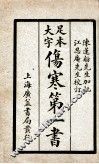 陳蓮舫先生加批
江忍庵先生校訂
足本
大字
傷寒第一書
上海廣益書局發行